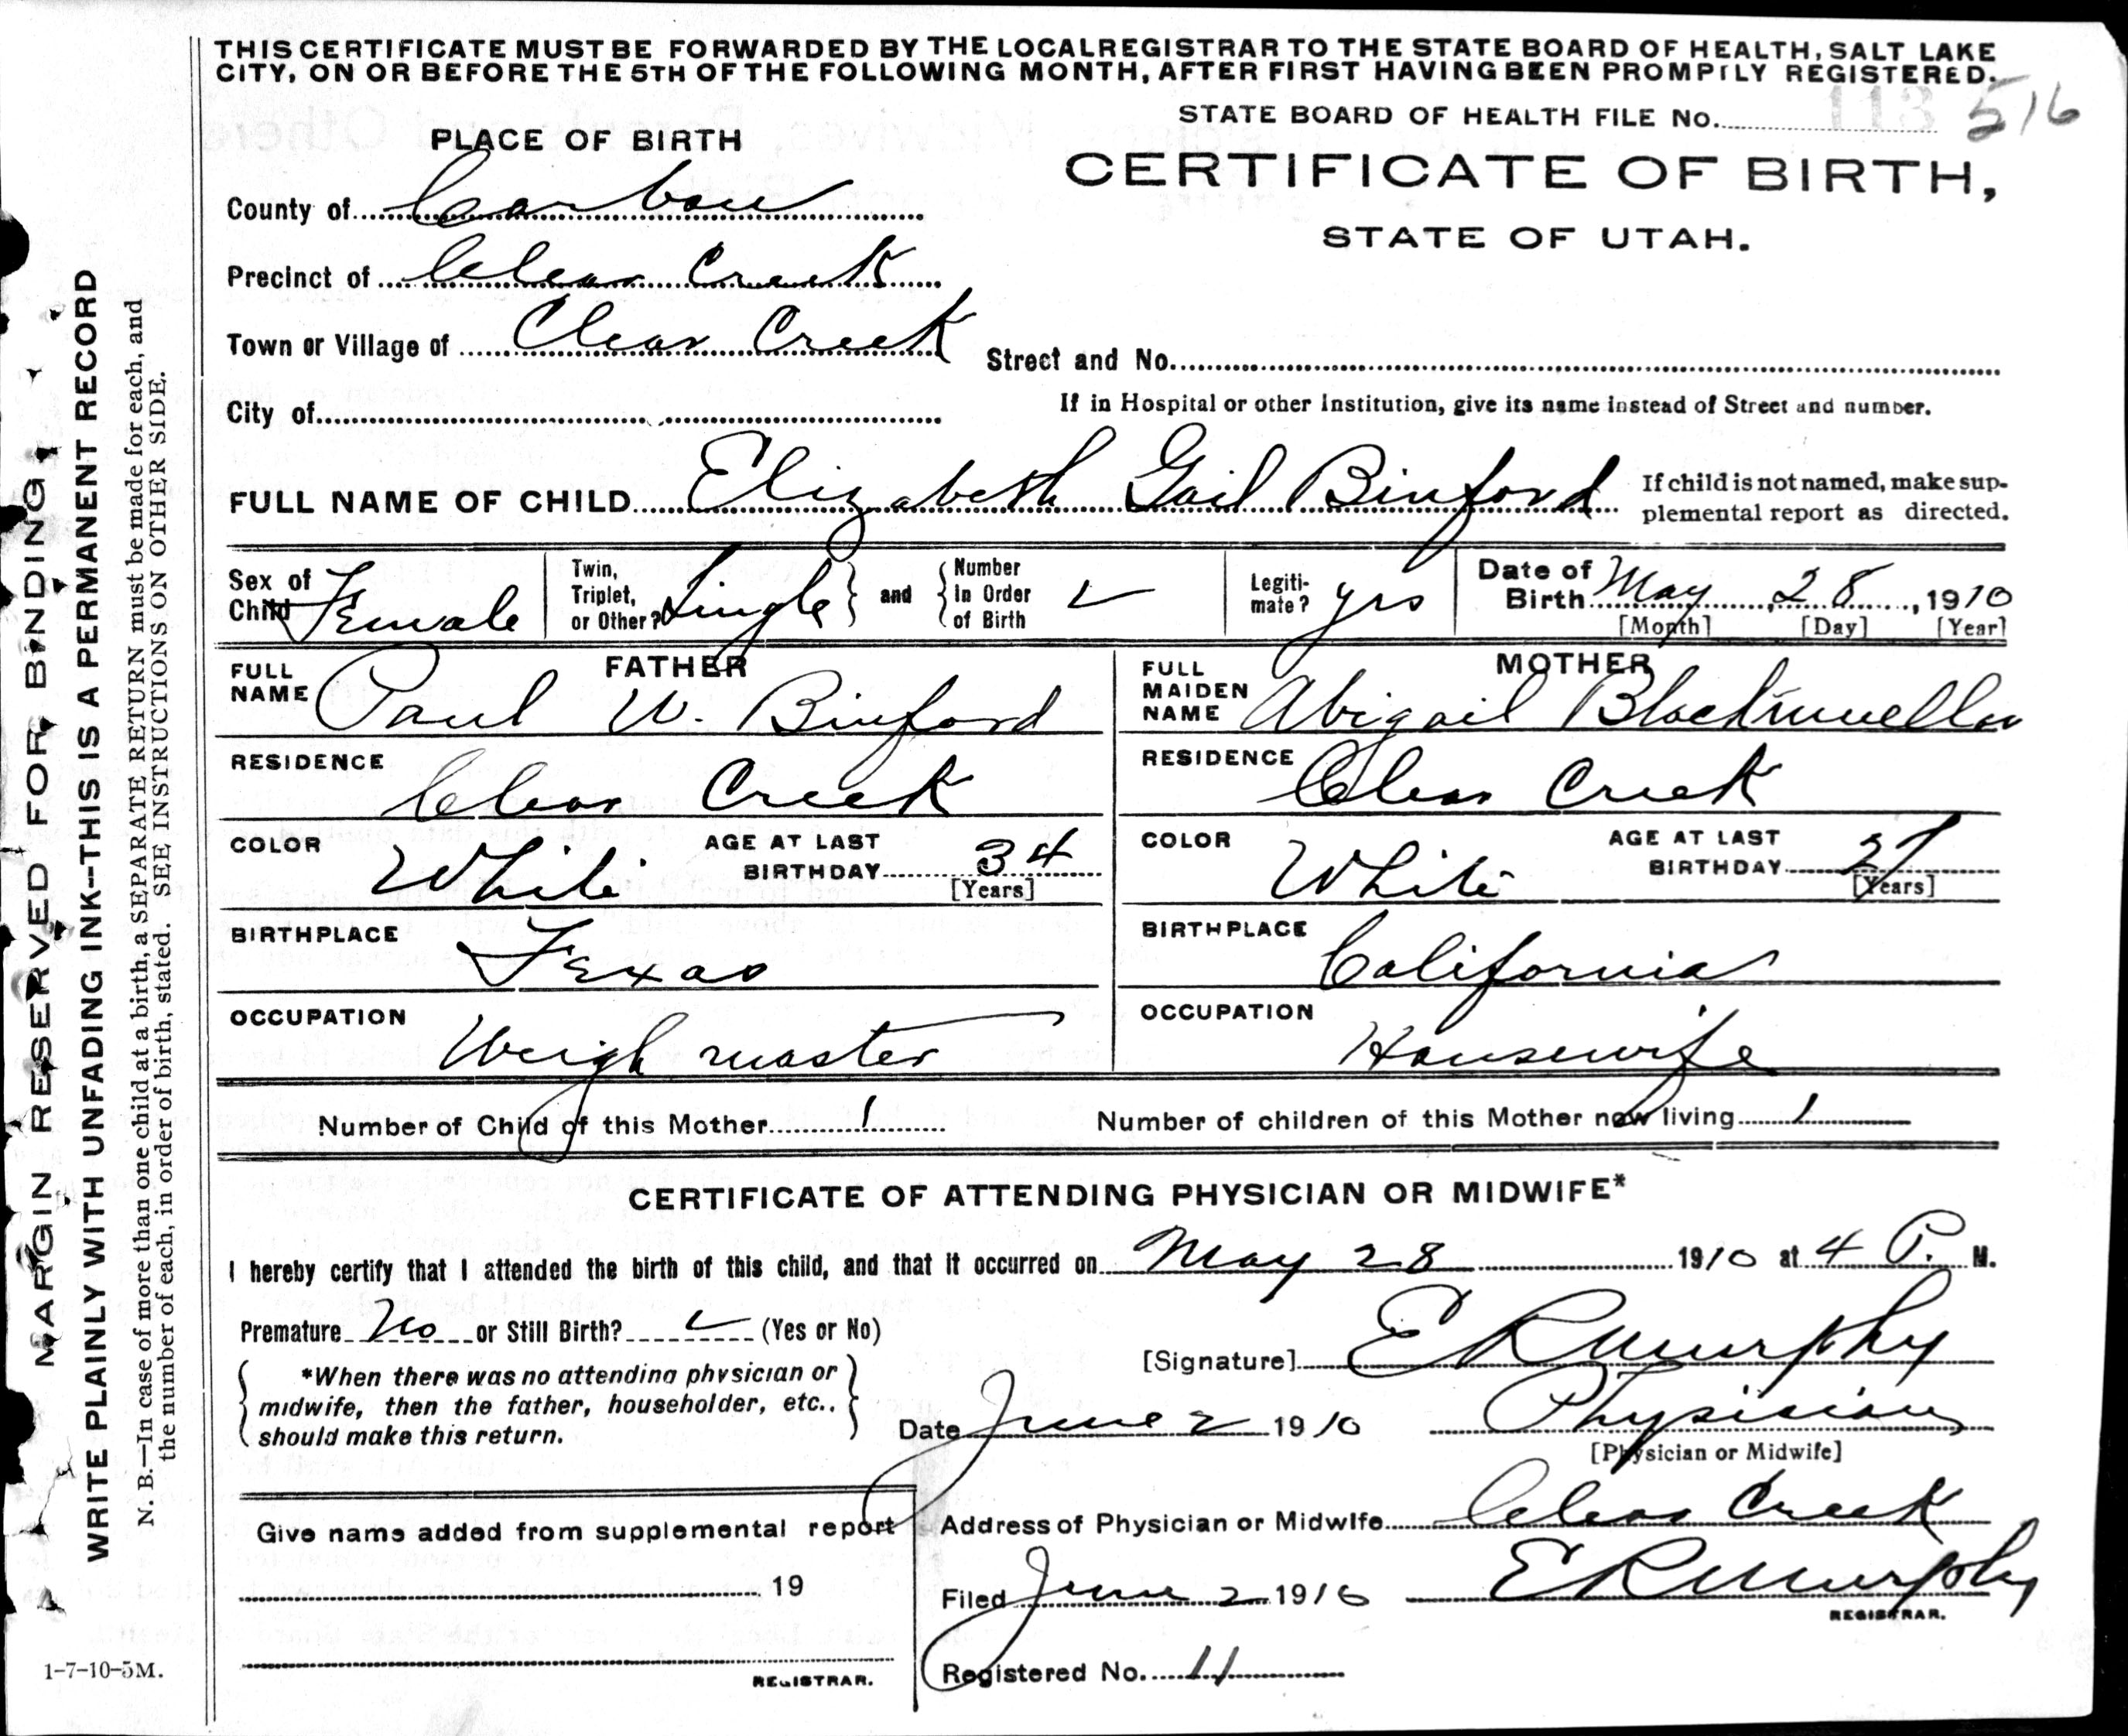 THIS CERTIFICATE MUST BE FORWARDED BY THE LOCAL REGISTRAR TO THE STATE BOARD OF HEALTH, SALT LAKE
CITY, ON OR BEFORE THE 5TH OF THE FOLLOWING MONTH, AFTER FIRST HAVING BEEN PROMPTLY REGISTERED.
STATE BOARD OF HEALTH FILE No. 113 516
PLACE OF BIRTH
CERTIFICATE OF BIRTH,
STATE OF UTAH.
County of Carbon
Precinct of Clear Creek
Town or Village of Clear Creek
Street and No.
City of
If in Hospital or other Institution, give its name instead of Street and number.
FULL NAME OF CHILD Elizabeth Gail Binford
If child is not named, make sup-
plemental report as directed.
Sex of Child Female
Twin, Triplet, or Other? Single
and
Number In Order of Birth
Legiti-mate? yes
Date of Birth May 28, 1910
[Month] [Day] [Year]
FATHER
FULL NAME Paul W. Binford
RESIDENCE Clear Creek
COLOR White
AGE AT LAST BIRTHDAY 34
[Years]
BIRTHPLACE Texas
OCCUPATION Weigh master
MOTHER
FULL MAIDEN NAME Abigail
RESIDENCE Clear Creek
COLOR White
AGE AT LAST BIRTHDAY 27
[Years]
BIRTHPLACE California
OCCUPATION Housewife
Number of Child of this Mother 1
Number of children of this Mother now living 1
CERTIFICATE OF ATTENDING PHYSICIAN OR MIDWIFE*
I hereby certify that I attended the birth of this child, and that it occurred on May 28 1910 at 4 P. M.
Premature No or Still Birth? (Yes or No)
*When there was no attending physician or
midwife, then the father, householder, etc.,
should make this return.
[Signature] E R Murphy
Date June 2 1910
Physician
[Physician or Midwife]
Give name added from supplemental report
19
REGISTRAR.
Address of Physician or Midwife Clear Creek
Filed June 2 1910 E R Murphy
REGISTRAR.
Registered No. 11
1-7-10-5M.
MARGIN RESERVED FOR BINDING
WRITE PLAINLY WITH UNFADING INK--THIS IS A PERMANENT RECORD
N. B.—In case of more than one child at a birth, a SEPARATE RETURN must be made for each, and
the number of each, in order of birth, stated. SEE INSTRUCTIONS ON OTHER SIDE.